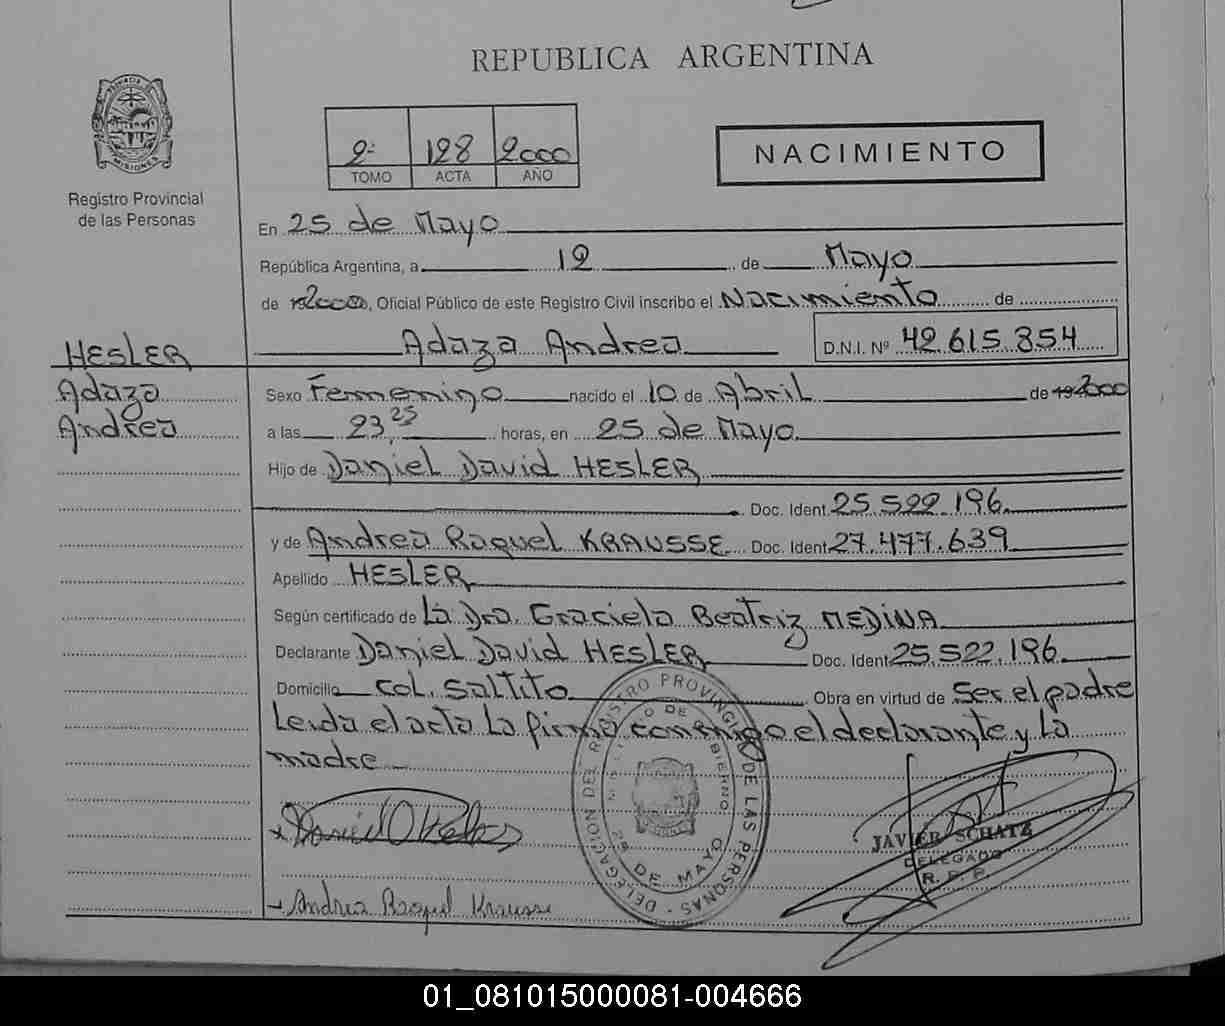 REPUBLICA ARGENTINA
2º 128 2000
TOMO ACTA AÑO
NACIMIENTO
MISIONES
Registro Provincial
de las Personas
En 25 de Mayo
República Argentina, a 12 de Mayo
de 2000, Oficial Público de este Registro Civil inscribo el Nacimiento de
Adaza Andrea D.N.I. Nº 42.615.854
HESLER
Adaza
Andrea
Sexo Femenino nacido el 10 de Abril de 192000
a las 23,25 horas, en 25 de Mayo
Hijo de Daniel David HESLER
Doc. Ident. 25.522.196.
y de Andrea Raquel KRAUSSE Doc. Ident. 27.477.639
Apellido HESLER
Según certificado de La Dra. Graciela Beatriz MEDINA
Declarante Daniel David HESLER Doc. Ident. 25.522.196.
Domicilio Col. Saltito Obra en virtud de Ser el padre
Leida el acta La firma conmigo el declarante y La
madre
DELEGACION DEL REGISTRO PROVINCIAL DE LAS PERSONAS
MINISTERIO DE GOBIERNO
25 DE MAYO
JAVIER SCHATZ
DELEGADO
R. P. P.
Andrea Raquel Krausse
01_081015000081-004666